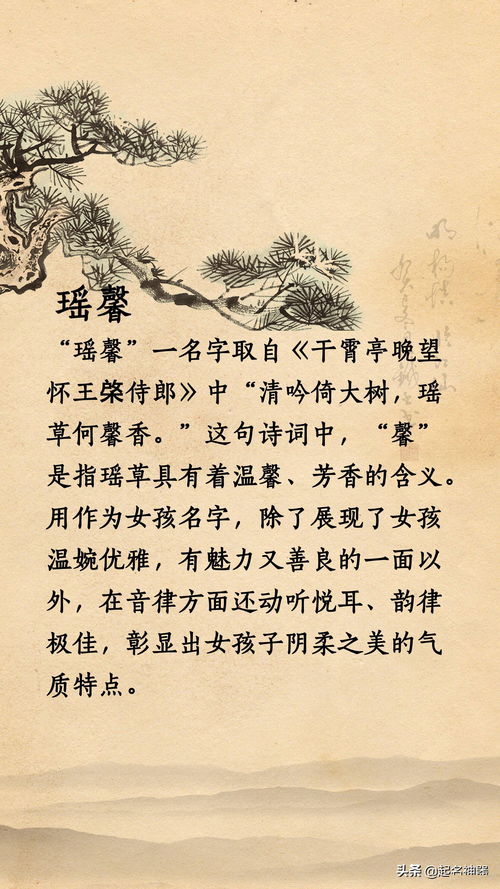 瑶馨
“瑶馨”一名字取自《干霄亭晚望
怀王棨侍郎》中“清吟倚大树，瑶
草何馨香。”这句诗词中，“馨”
是指瑶草具有着温馨、芳香的含义。
用作为女孩名字，除了展现了女孩
温婉优雅，有魅力又善良的一面以
外，在音律方面还动听悦耳、韵律
极佳，彰显出女孩子阴柔之美的气
质特点。
头条 @起名神器